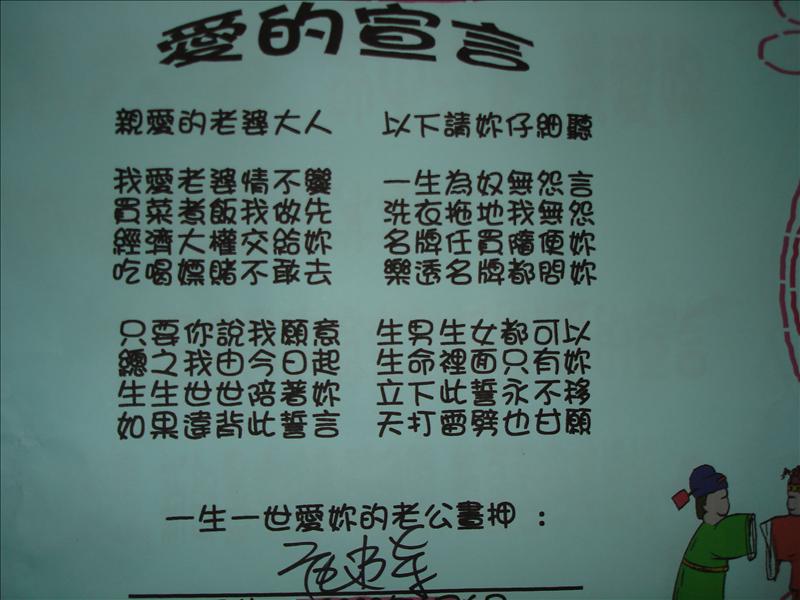 愛的宣言
親愛的老婆大人 以下請妳仔細聽
我愛老婆情不變 一生為奴無怨言
買菜煮飯我做先 洗衣拖地我無怨
經濟大權交給妳 名牌任買隨便妳
吃喝嫖賭不敢去 樂透名牌都問妳
只要你說我願意 生男生女都可以
總之我由今日起 生命裡面只有妳
生生世世陪著妳 立下此誓永不移
如果違背此誓言 天打雷劈也甘願
一生一世愛妳的老公畫押：